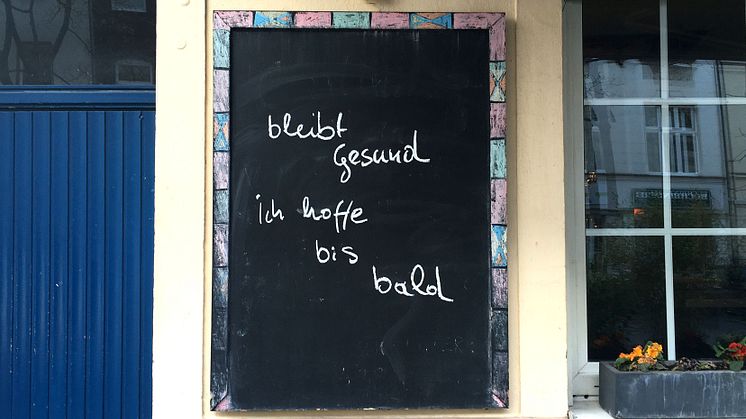 bleibt
Gesund
ich hoffe
bis
bald